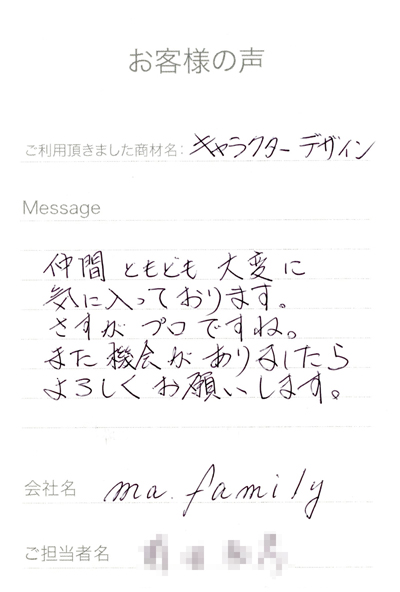 お客様の声
ご利用頂きました商材名: キャラクターデザイン
Message
仲間ともども大変に
気に入っております。
さすがプロですね。
また機会がありましたら
よろしくお願いします。
会社名 ma. family
ご担当者名